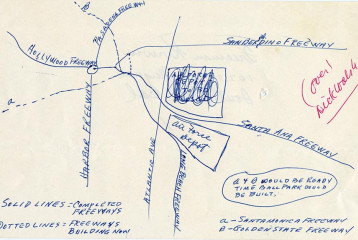 B
PASADENA FREEWAY
HOLLYWOOD FREEWAY
SANBERDINO FREEWAY
over!
HARBOR FREEWAY
a
AIR FORCE DEPOT
TO BE
air Force
Depot
SANTA ANA FREEWAY
ATLANTIC AVE
LONG BEACH FREEWAY
a & B WOULD BE READY
TIME BALL PARK COULD
BE BUILT.
SOLID LINES = COMPLETED
FREEWAYS
DOTTED LINES = FREEWAYS
BUILDING NOW
a - SANTA MONICA FREEWAY
B - GOLDEN STATE FREEWAY